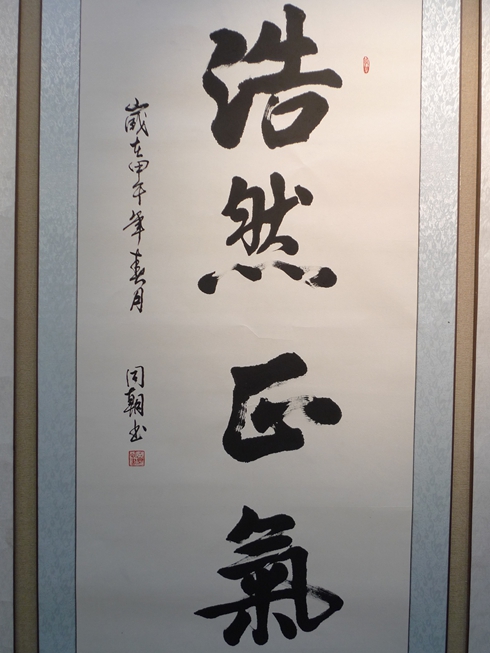 浩然正氣
歲在甲午年春月
同朝书